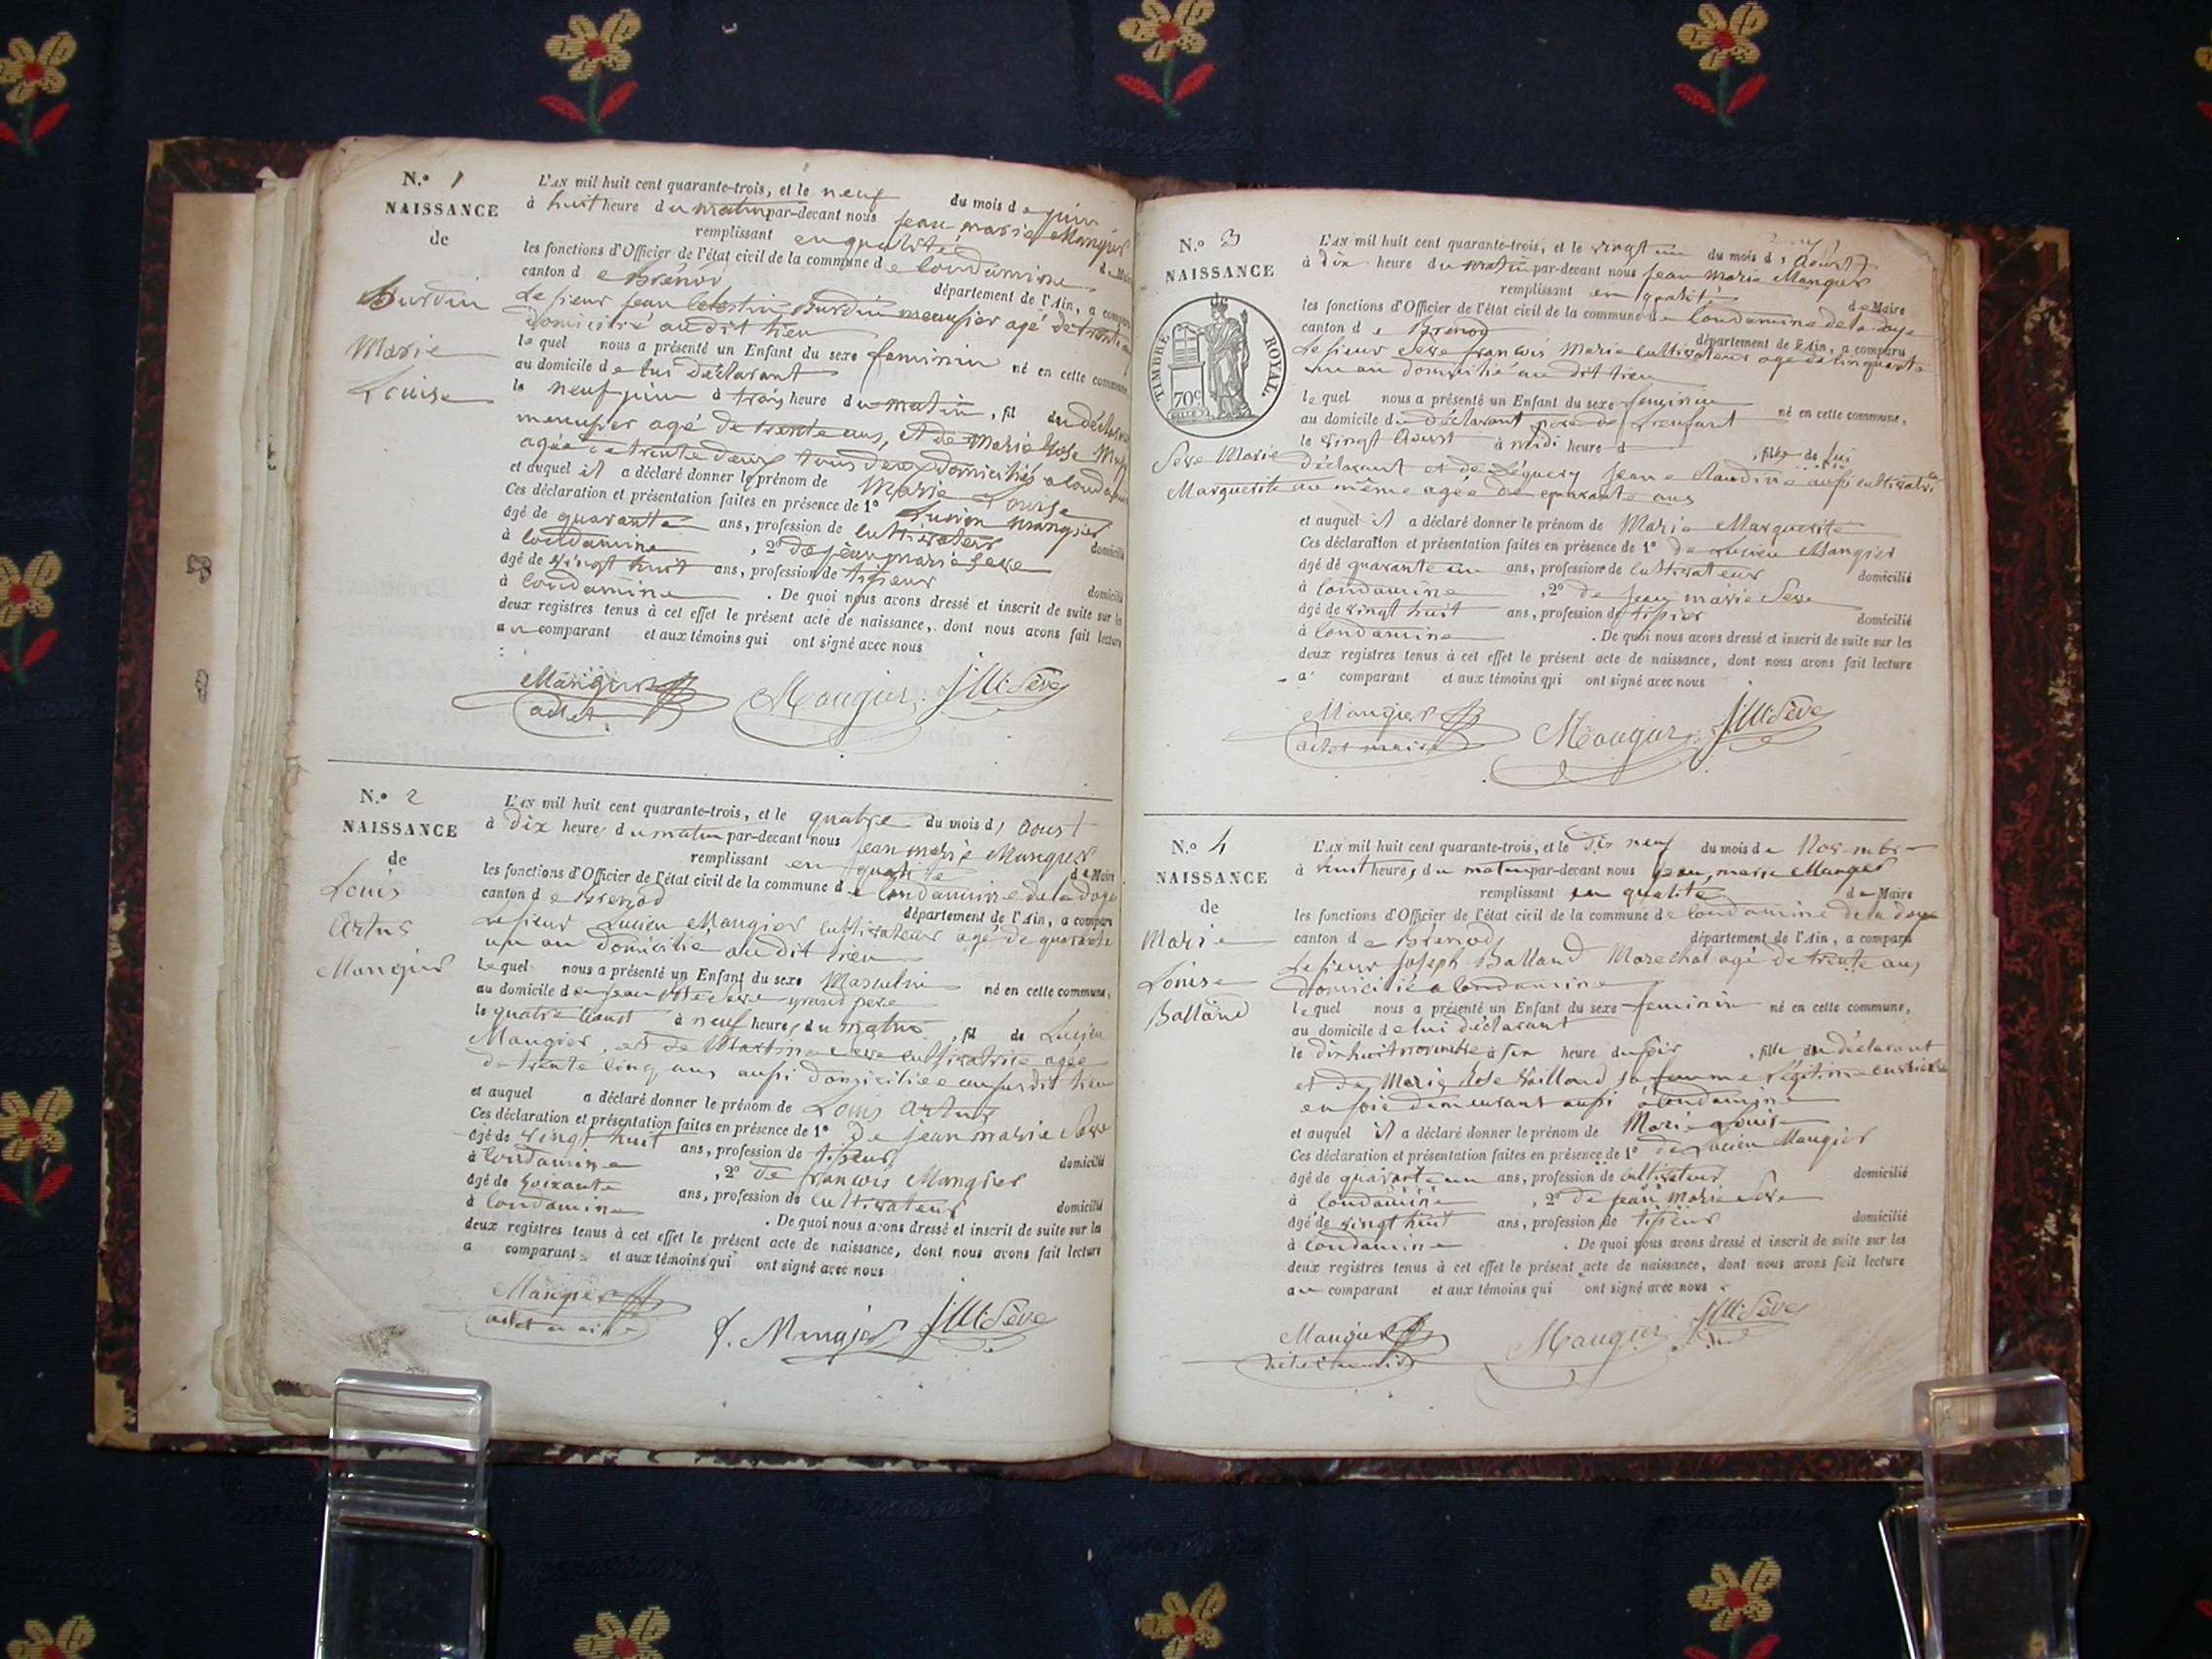 N.º 1
NAISSANCE
de
Burdin
Marie
Louise
L'AN mil huit cent quarante-trois, et le neuf du mois de juin
à huit heure du matin par-devant nous jean-marie Mangier
remplissant en qualité de Maire
les fonctions d'Officier de l'état civil de la commune de Condamine
canton de Brenod département de l'Ain, a comparu
Le sieur jean Celestin Burdin menusier agé de trente ans
domicilié audit lieu
lequel nous a présenté un Enfant du sexe feminin né en cette commune,
au domicile de lui déclarant
le neuf juin à trois heure du matin, fil du déclarant
menusier agé de trente ans, et de Marie Rose
agée de trente deux tous deux domiciliés a Condamine
et auquel il a déclaré donner le prénom de Marie Louise
Ces déclaration et présentation faites en présence de 1º Lucien Mangier
âgé de quarante ans, profession de cultivateur domicilié
à Condamine, 2º de jean marie Seve
âgé de vingt huit ans, profession de tisseur domicilié
à Condamine. De quoi nous avons dressé et inscrit de suite sur les
deux registres tenus à cet effet le présent acte de naissance, dont nous avons fait lecture
au comparant et aux témoins qui ont signé avec nous
Mangier Mangier J M Sève
adjt
N.º 2
NAISSANCE
de
Louis
Artus
Mangier
L'AN mil huit cent quarante-trois, et le quatre du mois d'aoust
à dix heure, du matin par-devant nous jean marie Mangier
remplissant en qualité de Maire
les fonctions d'Officier de l'état civil de la commune de Condamine de la doye
canton de Brenod département de l'Ain, a comparu
Le sieur Lucien Mangier cultivateur agé de quarante
un an domicilié au dit lieu
lequel nous a présenté un Enfant du sexe Masculin né en cette commune,
au domicile de jean Seve grand pere
le quatre Aoust à neuf heure, du matin, fil de Lucien
Mangier, et de Martine Seve cultivatrice agée
de trente cinq ans aussi domiciliée au susdit lieu
et auquel a déclaré donner le prénom de Louis Artus
Ces déclaration et présentation faites en présence de 1º de jean marie Seve
âgé de vingt huit ans, profession de tisseur domicilié
à Condamine, 2º de françois Mangier
âgé de soixante ans, profession de cultivateur domicilié
à Condamine. De quoi nous avons dressé et inscrit de suite sur les
deux registres tenus à cet effet le présent acte de naissance, dont nous avons fait lecture
a comparant et aux témoins qui ont signé avec nous
Mangier f. Mangier J M Sève
N.º 3
NAISSANCE
de
TIMBRE ROYAL
70c
Seve Marie
Marguerite
L'AN mil huit cent quarante-trois, et le vingt un du mois d'Aoust
à dix heure du matin par-devant nous jean marie Mangier
remplissant en qualité de Maire
les fonctions d'Officier de l'état civil de la commune de Condamine de la doye
canton de Brenod département de l'Ain, a comparu
Le sieur Seve françois Marie cultivateur agé de cinquante
un an domicilié au dit lieu
lequel nous a présenté un Enfant du sexe feminin né en cette commune,
au domicile du déclarant père de l'enfant
le vingt Aoust à midi heure d, fille de lui
déclarant et de jeane Claudine aussi cultivatrice
au même agée de quarante ans
et auquel il a déclaré donner le prénom de Marie Marguerite
Ces déclaration et présentation faites en présence de 1º de Lucien Mangier
âgé de quarante un ans, profession de cultivateur domicilié
à Condamine, 2º de jean marie Seve
âgé de vingt huit ans, profession de tissier domicilié
à Condamine. De quoi nous avons dressé et inscrit de suite sur les
deux registres tenus à cet effet le présent acte de naissance, dont nous avons fait lecture
a comparant et aux témoins qui ont signé avec nous
Mangier Mangier J M Sève
N.º 4
NAISSANCE
de
Marie
Louise
Balland
L'AN mil huit cent quarante-trois, et le dix neuf du mois de Novembre
à huit heure, du matin par-devant nous jean, marie Mangier
remplissant en qualité de Maire
les fonctions d'Officier de l'état civil de la commune de Condamine de la doye
canton de Brenod département de l'Ain, a comparu
Le sieur joseph Balland Marechal agé de trente ans
domicilié a Condamine
lequel nous a présenté un Enfant du sexe feminin né en cette commune,
au domicile de lui déclarant
le dix huit novembre à six heure du soir, fille du déclarant
et de Marie Rose Vailloud sa femme légitime ouvriere
en soie demeurant aussi à Condamine
et auquel il a déclaré donner le prénom de Marie Louise
Ces déclaration et présentation faites en présence de 1º de Lucien Mangier
âgé de quarante un ans, profession de cultivateur domicilié
à Condamine, 2º de jean Marie Seve
âgé de vingt huit ans, profession de tisseur domicilié
à Condamine. De quoi nous avons dressé et inscrit de suite sur les
deux registres tenus à cet effet le présent acte de naissance, dont nous avons fait lecture
au comparant et aux témoins qui ont signé avec nous
Mangier Mangier J M Sève